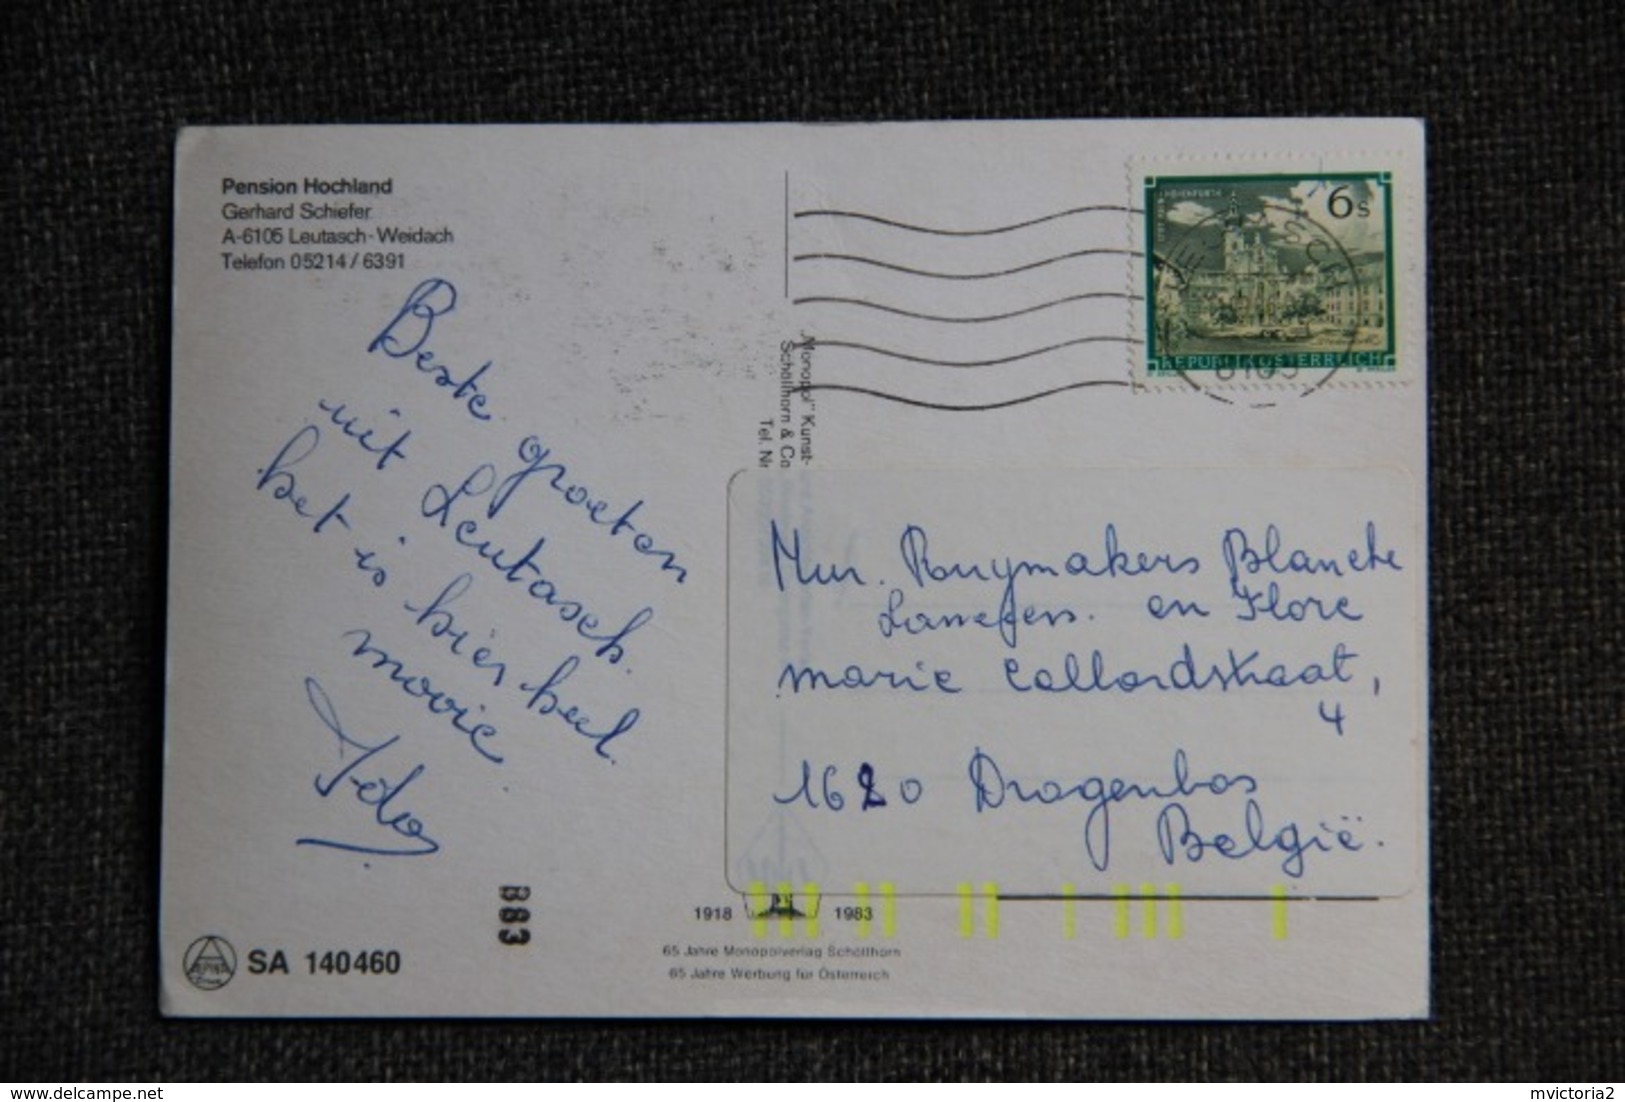 Pension Hochland
Gerhard Schiefer
A-6105 Leutasch-Weidach
Telefon 05214/6391
Beste groeten
uit Leutasch.
het is hier heel
mooie.
Ida
6s
REPUBLIK ÖSTERREICH
"Monopol" Kunst-
Schöllhorn & Co
Tel. Nr
Mvr. Ruymakers Blanche
en Flore
marie Collardstraat,
4
1620 Drogenbos
België.
883
SA 140460
1918 1983
65 Jahre Monopolverlag Schöllhorn
65 Jahre Werbung für Österreich
mvictoria2